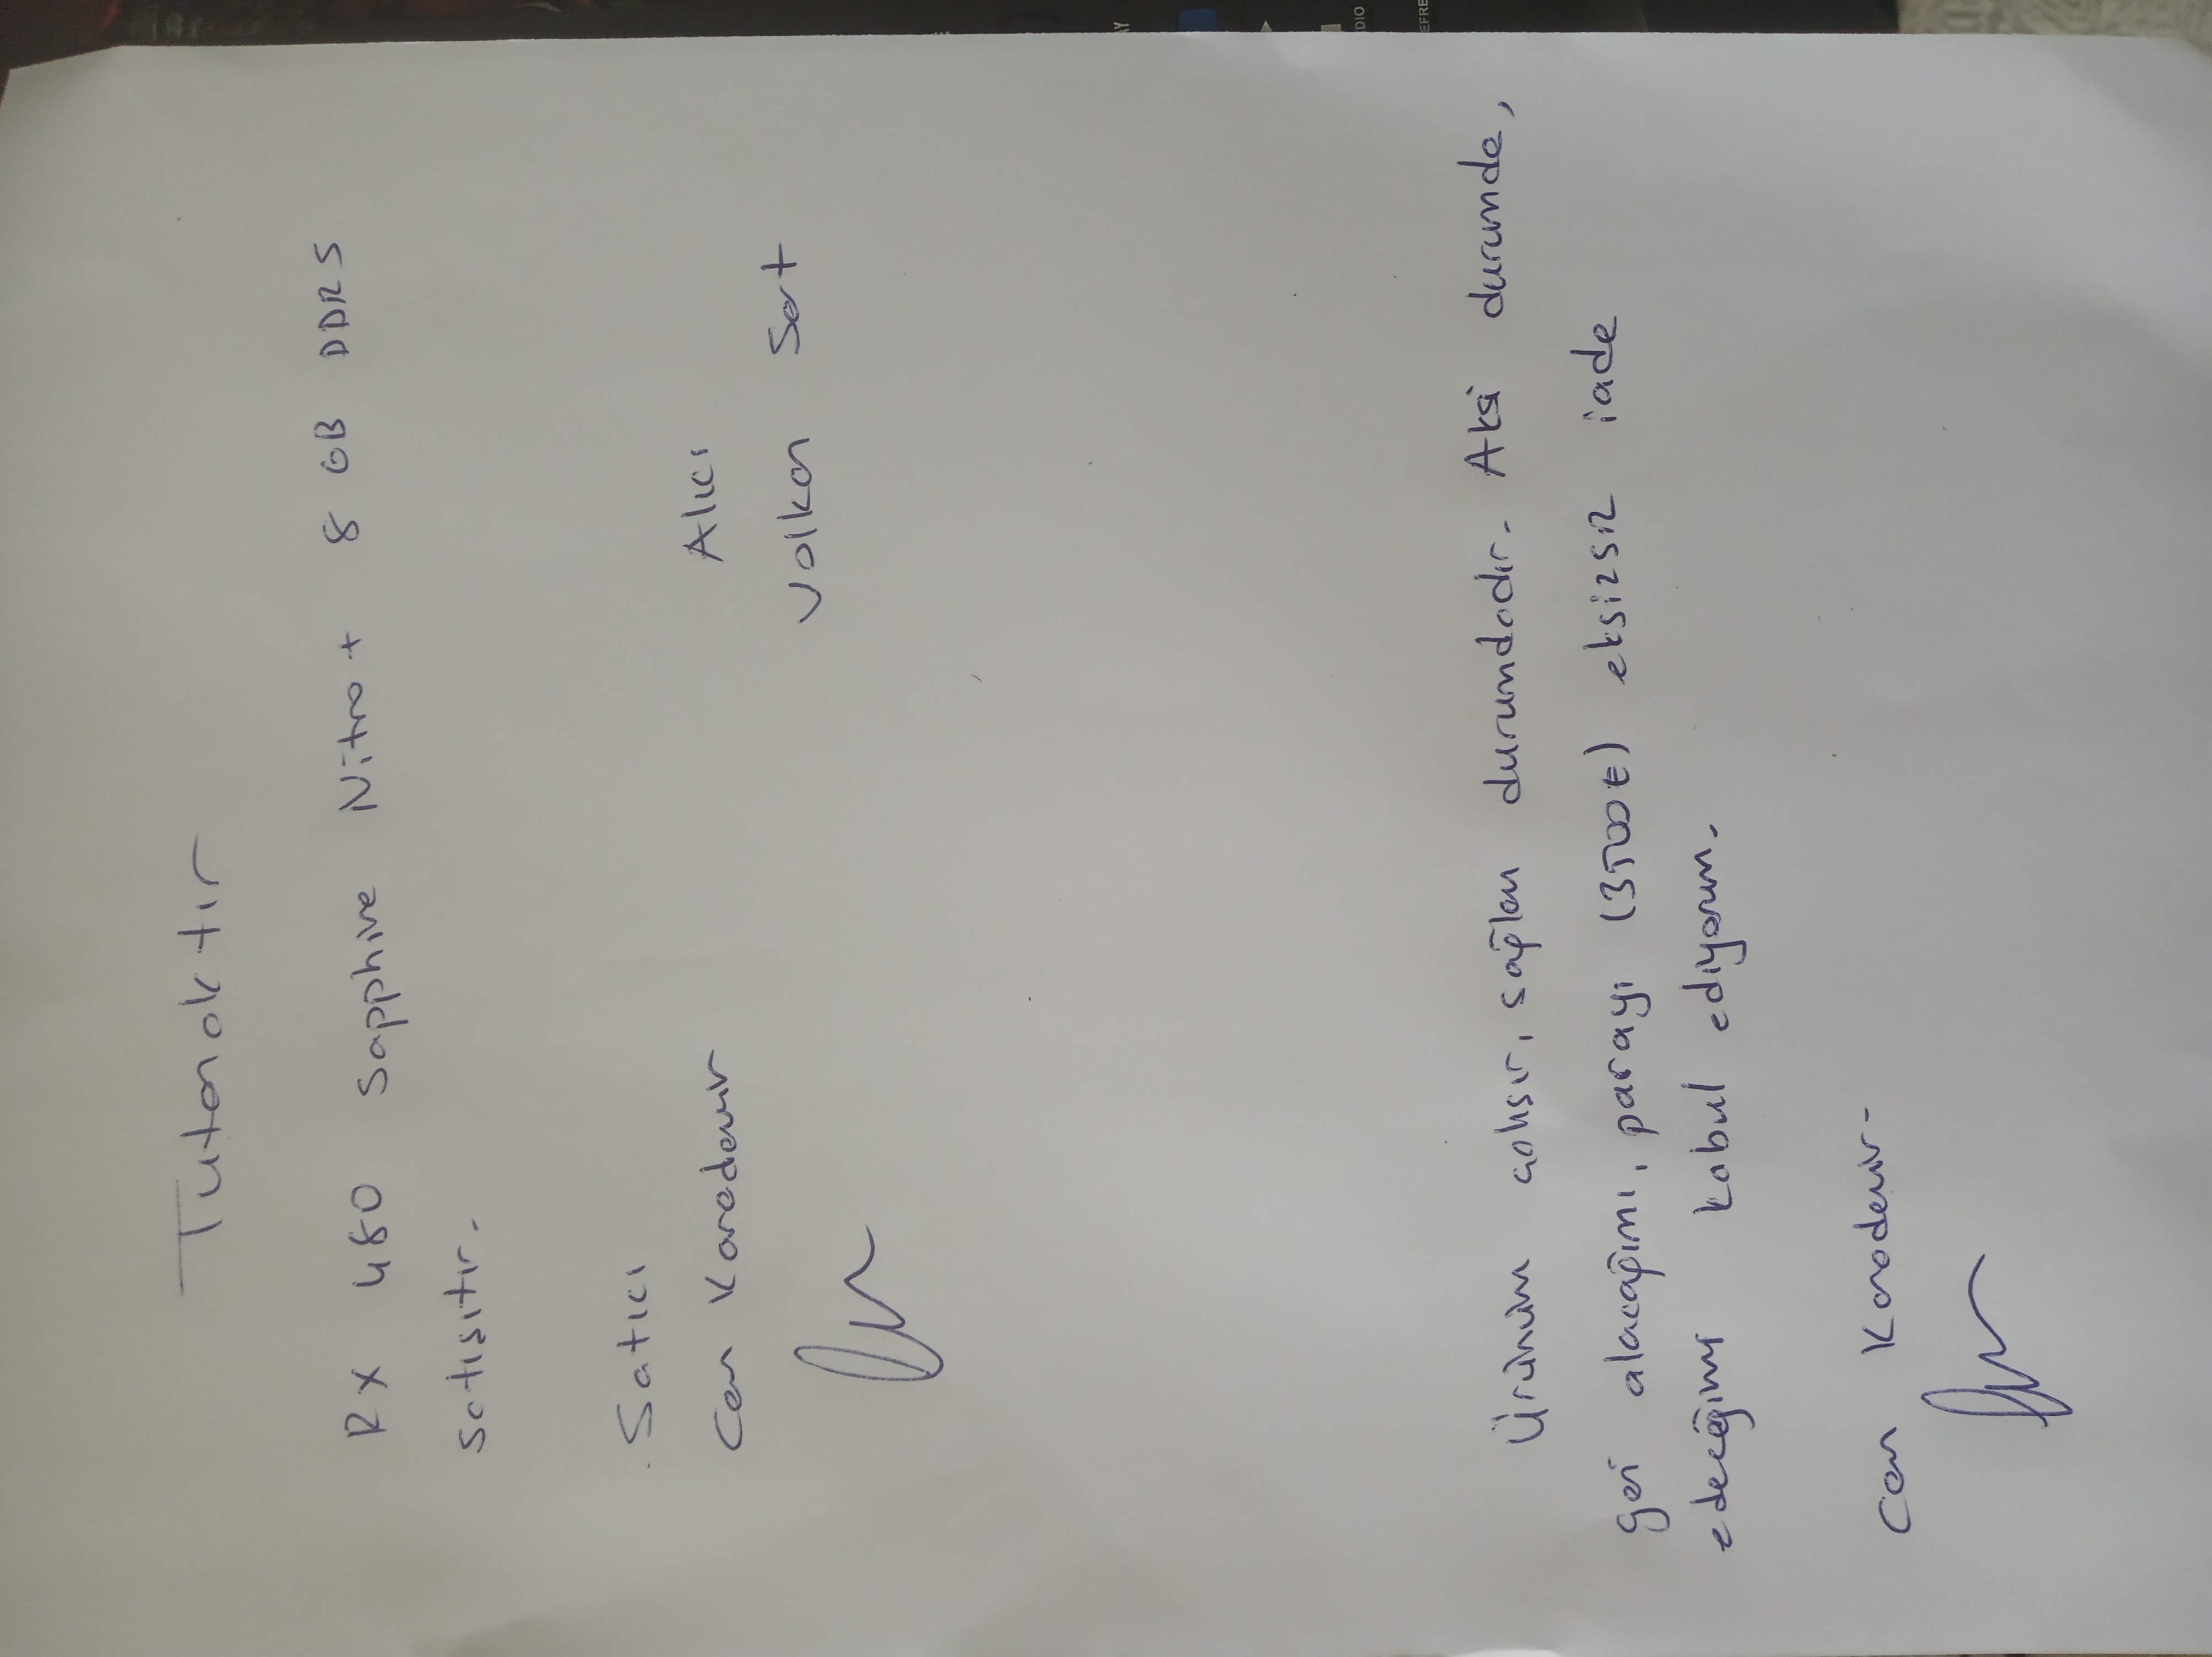 Tutanaktır
RX 480 Sapphire Nitro+ 8 GB DDR5
satısıtır.
Satıcı
Can Karademir
Alıcı
Volkan Sart
Ürünüm calısır, sağlam durumdadır. Aksi durumda,
geri alacağımı, parayı (3500₺) eksizsiz iade
edeceğimi kabul ediyorum.
Can Karademir.
DIO
EFRE